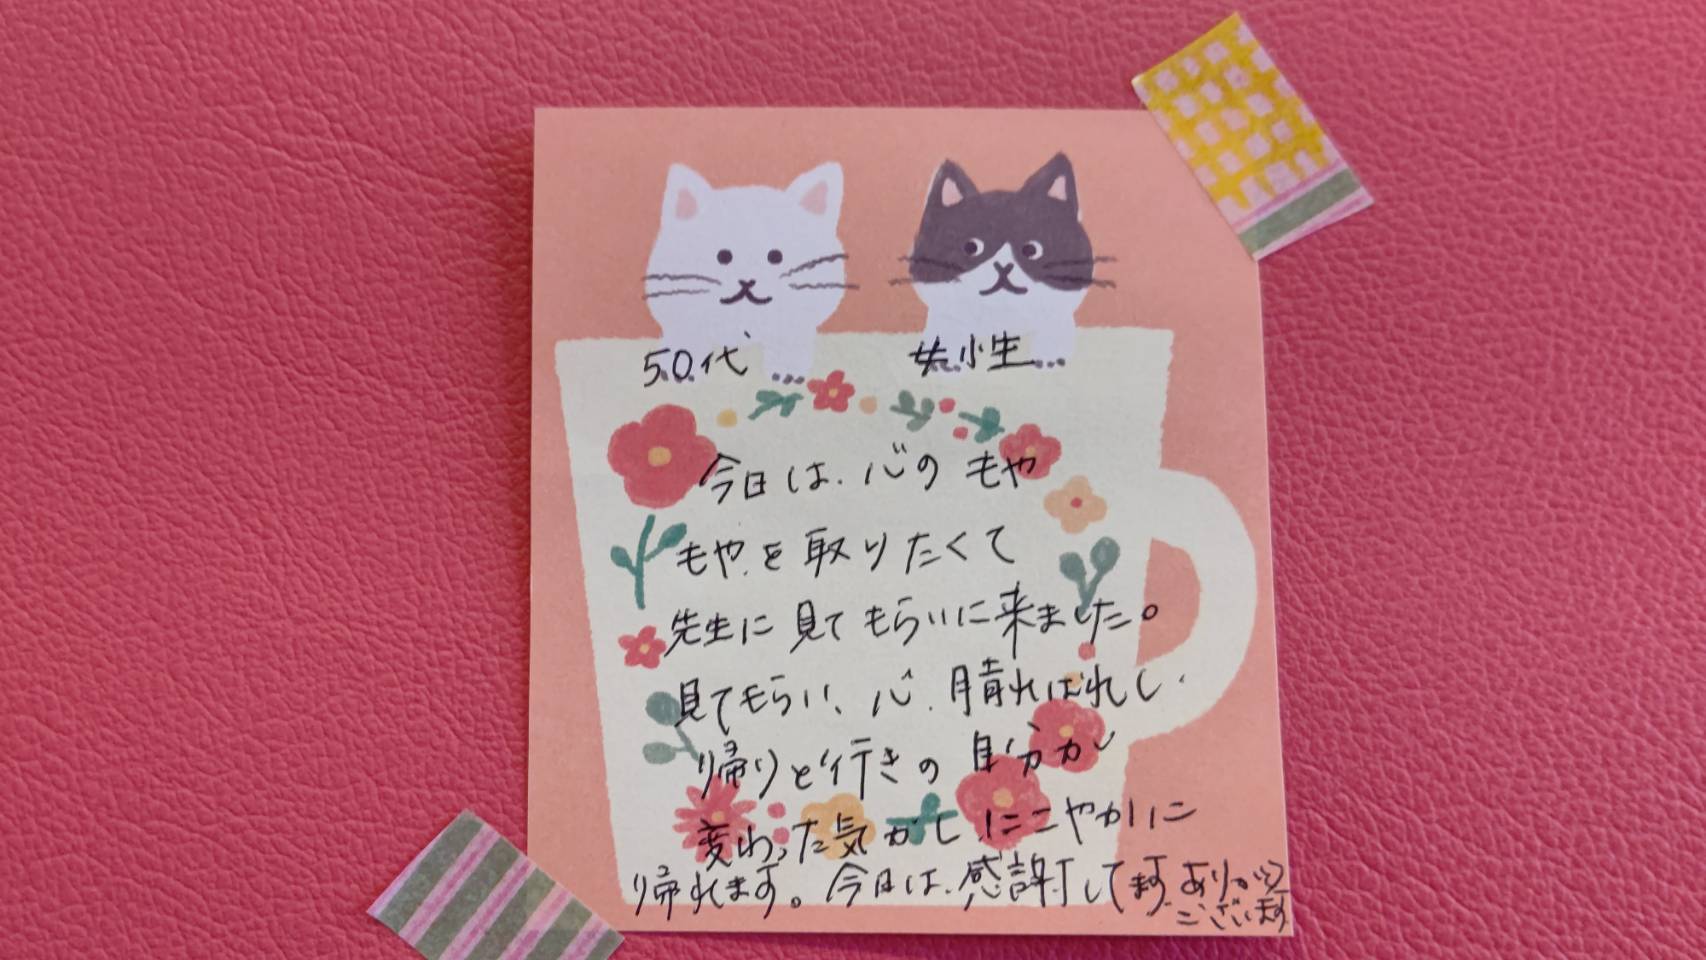 50代 女性
今日は、心のもや
もやを取りたくて
先生に見てもらいに来ました。
見てもらい、心、晴ればれし、
帰りと行きの自分が
変わった気がし、にこやかに
帰れます。今日は、感謝してます。ありがとう
ございます